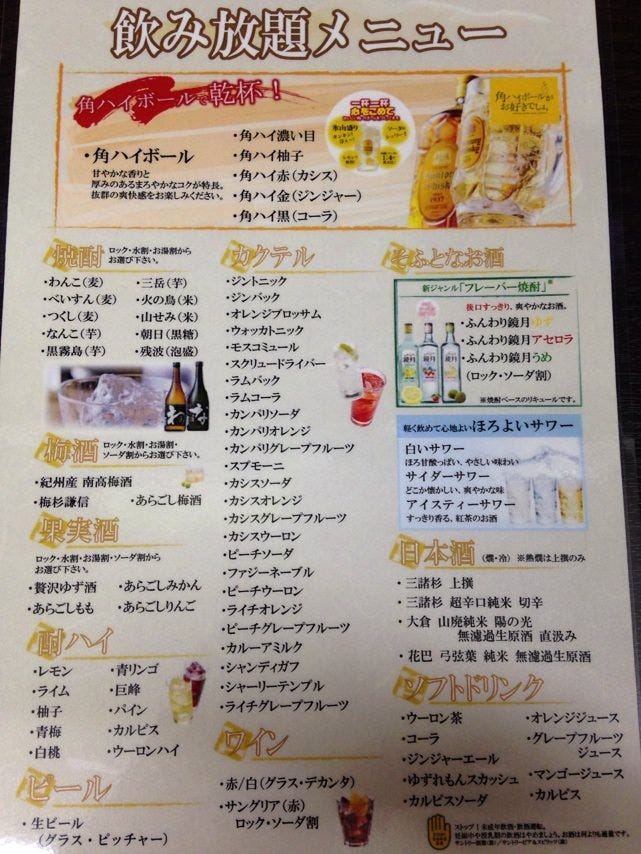 飲み放題メニュー
角ハイボールで乾杯！
・角ハイボール
甘やかな香りと
厚みのあるまろやかなコクが特長。
抜群の爽快感をお楽しみください。
・角ハイ濃い目
・角ハイ柚子
・角ハイ赤（カシス）
・角ハイ金（ジンジャー）
・角ハイ黒（コーラ）
一杯一杯
心をこめて
氷山盛り
角ハイボールが
お好きでしょ。
焼酎
ロック・水割・お湯割から
お選び下さい。
・わんこ（麦）
・べいすん（麦）
・つくし（麦）
・なんこ（芋）
・黒霧島（芋）
・三岳（芋）
・火の鳥（米）
・山せみ（米）
・朝日（黒糖）
・残波（泡盛）
梅酒
ロック・水割・お湯割・
ソーダ割からお選び下さい。
・紀州産 南高梅酒
・梅杉謙信
・あらごし梅酒
果実酒
ロック・水割・お湯割・ソーダ割から
お選び下さい。
・贅沢ゆず酒
・あらごしみかん
・あらごしもも
・あらごしりんご
酎ハイ
・レモン
・ライム
・柚子
・青梅
・白桃
・青リンゴ
・巨峰
・パイン
・カルピス
・ウーロンハイ
ビール
・生ビール
（グラス・ピッチャー）
カクテル
・ジントニック
・ジンバック
・オレンジブロッサム
・ウォッカトニック
・モスコミュール
・スクリュードライバー
・ラムバック
・ラムコーラ
・カンパリソーダ
・カンパリオレンジ
・カンパリグレープフルーツ
・スプモーニ
・カシスソーダ
・カシスオレンジ
・カシスグレープフルーツ
・カシスウーロン
・ピーチソーダ
・ファジーネーブル
・ピーチウーロン
・ライチオレンジ
・ピーチグレープフルーツ
・カルーアミルク
・シャンディガフ
・シャーリーテンプル
・ライチグレープフルーツ
ワイン
・赤/白（グラス・デカンタ）
・サングリア（赤）
ロック・ソーダ割
そふとなお酒
新ジャンル「フレーバー焼酎」※
後口すっきり、爽やかなお酒。
・ふんわり鏡月ゆず
・ふんわり鏡月アセロラ
・ふんわり鏡月うめ
（ロック・ソーダ割）
※焼酎ベースのリキュールです。
軽く飲めて心地よいほろよいサワー
白いサワー
ほろ甘酸っぱい、やさしい味わい
サイダーサワー
どこか懐かしい、爽やかな味
アイスティーサワー
すっきり香る、紅茶のお酒
日本酒
（燗・冷） ※熱燗は上撰のみ
・三諸杉 上撰
・三諸杉 超辛口純米 切辛
・大倉 山廃純米 陽の光
無濾過生原酒 直汲み
・花巴 弓弦葉 純米 無濾過生原酒
ソフトドリンク
・ウーロン茶
・コーラ
・ジンジャーエール
・ゆずれもんスカッシュ
・カルピスソーダ
・オレンジジュース
・グレープフルーツ
ジュース
・マンゴージュース
・カルピス
ストップ！未成年飲酒・飲酒運転。
妊娠中や授乳期の飲酒はやめましょう。お酒は何よりも適量です。